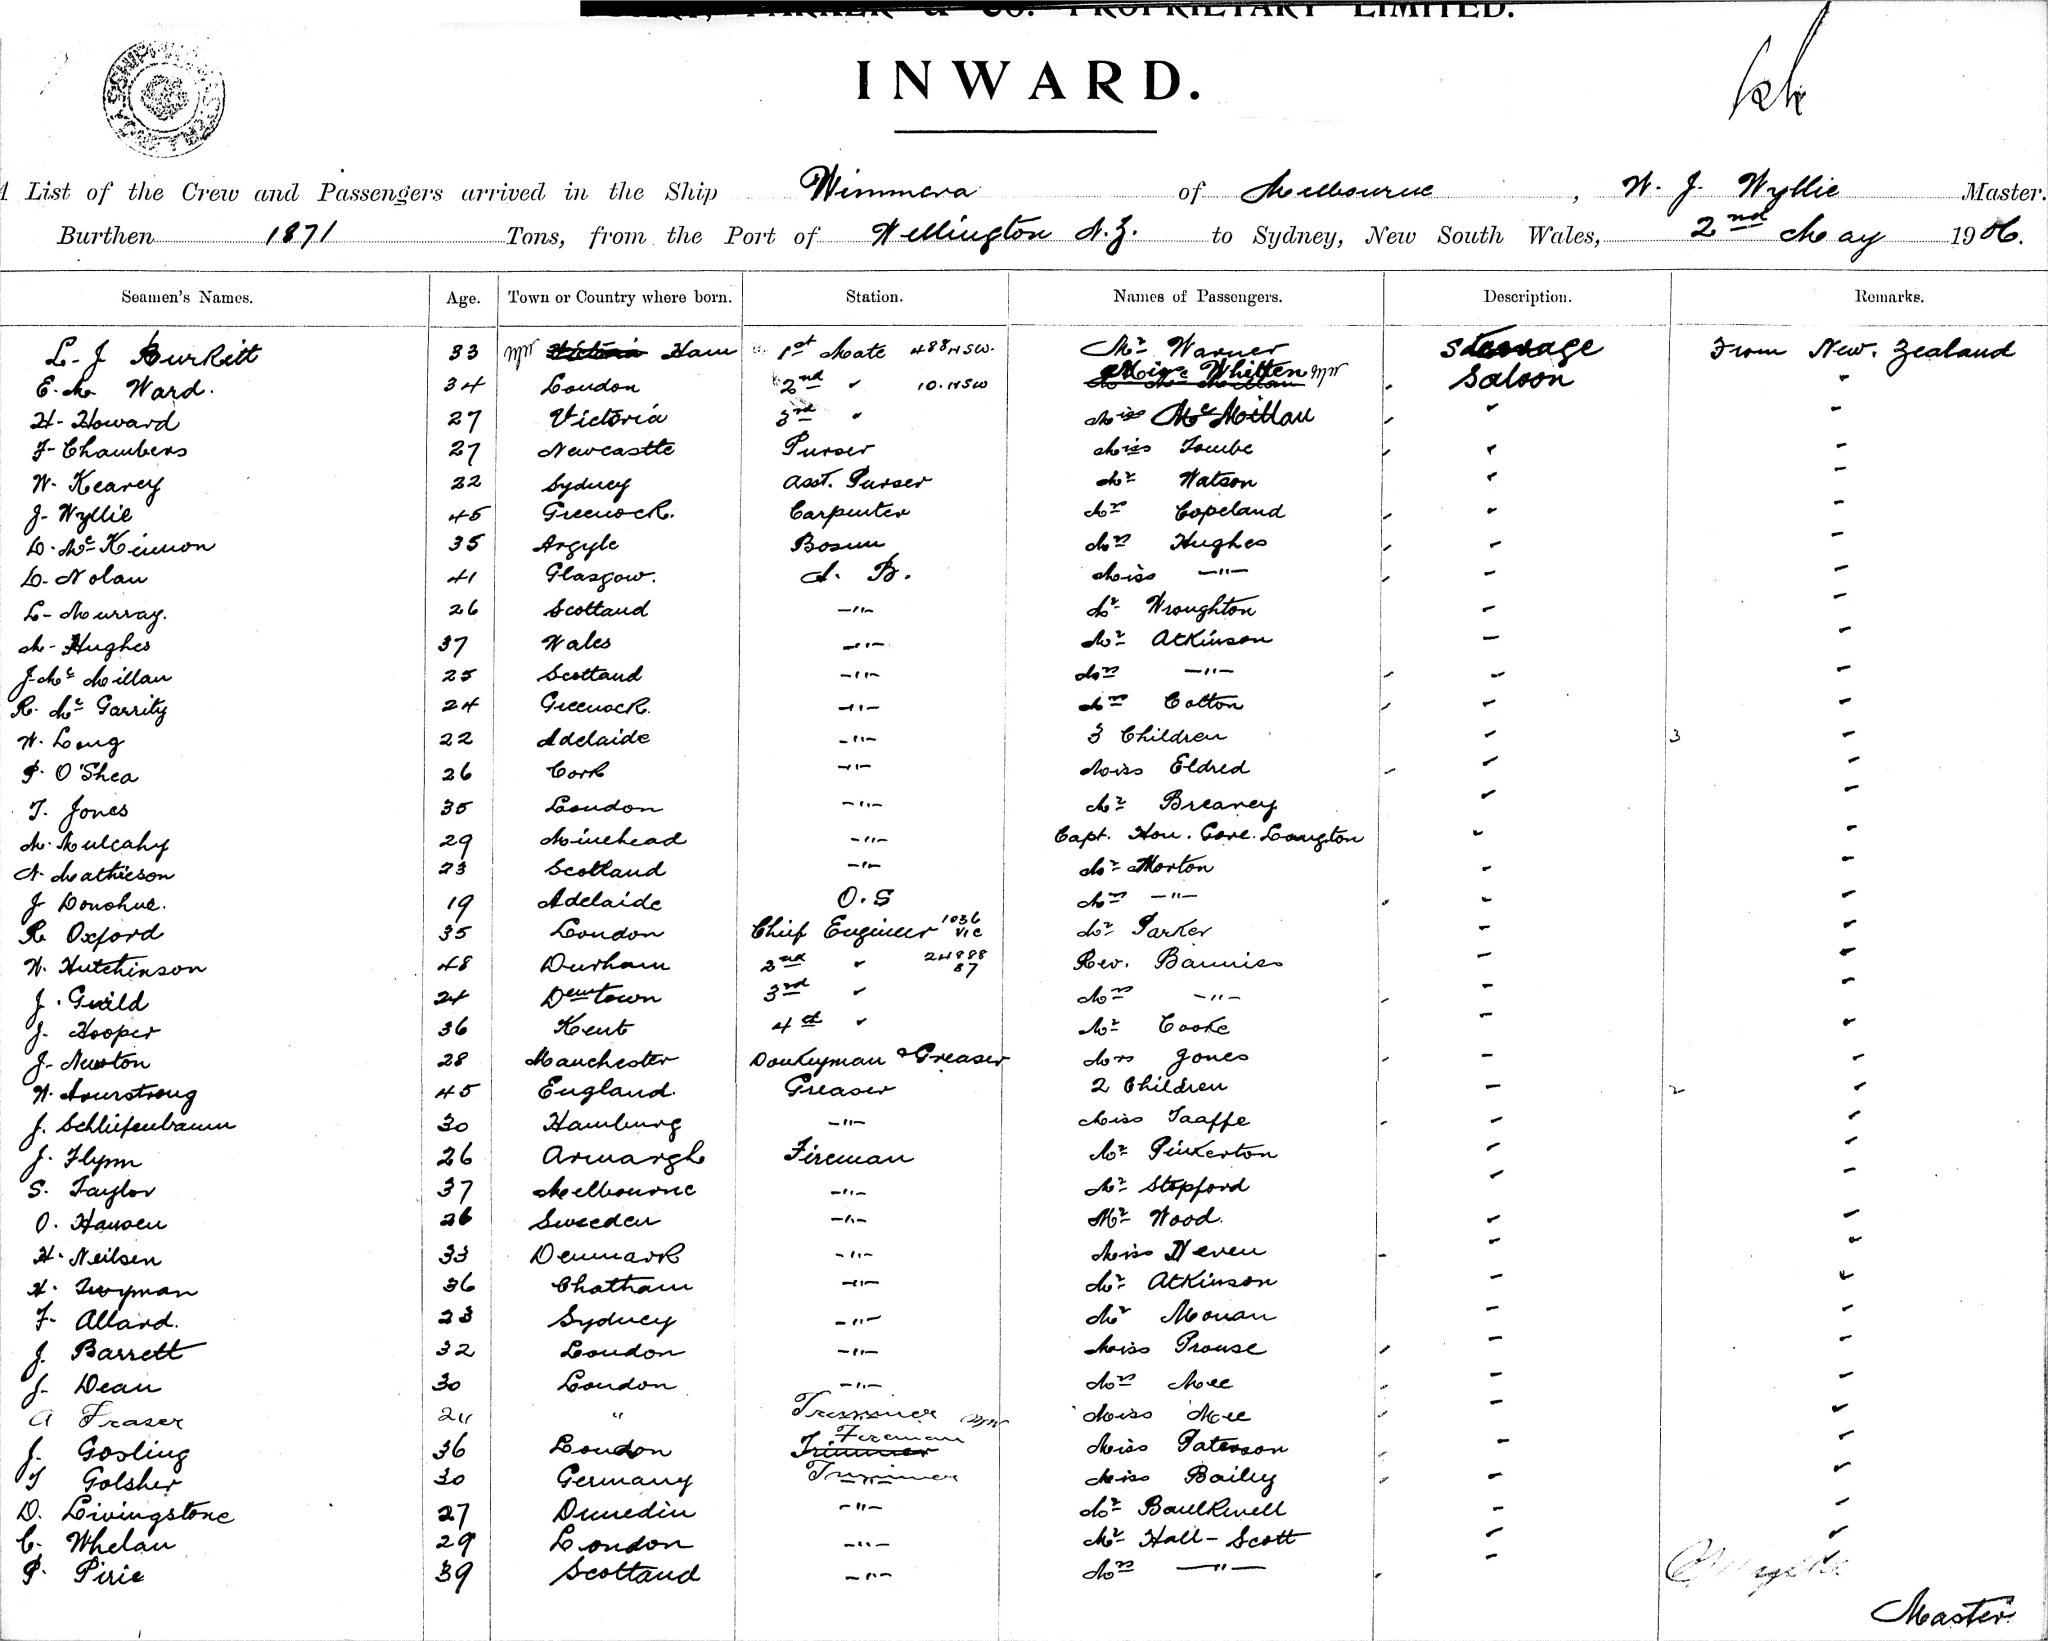 PARKER & CO. PROPRIETARY LIMITED.
INWARD.
A List of the Crew and Passengers arrived in the Ship Wimmera of Melbourne, W. J. Wyllie Master.
Burthen 1871 Tons, from the Port of Wellington N.Z. to Sydney, New South Wales, 2nd May 1906.
Seamen's Names. Age. Town or Country where born. Station. Names of Passengers. Description. Remarks.
L. J Burkitt 33 Ham 1st Mate 488 NSW. Mr Warner Steerage From New. Zealand
E. M. Ward. 34 London 2nd " 10. NSW Whitten Saloon "
H. Howard 27 Victoria 3rd " Miss McMillan " "
F. Chambers 27 Newcastle Purser Miss Tombe " "
W. Kearey 22 Sydney Asst. Purser Mr Watson " "
J. Wyllie 45 Greenock. Carpenter Mrs Copeland " "
D. McKinnon 35 Argyle Bosun Mrs Hughes " "
D. Nolan 41 Glasgow. A. B. Miss —"— " "
L. Murray. 26 Scotland —"— Mr Wroughton " "
M. Hughes 37 Wales —"— Mr Atkinson " "
J. McMillan 25 Scotland —"— Mrs —"— " "
R. McGarrity 24 Greenock. —"— Mrs Colton " "
W. Long 22 Adelaide —"— 3 Children " 3 "
P. O'Shea 26 Cork —"— Miss Eldred " "
T. Jones 35 London —"— Mr Breaney " "
M. Mulcahy 29 Minehead —"— Capt. Hon. Gore. Langton " "
N. Mathieson 23 Scotland —"— Mr Morton " "
J Donohue. 19 Adelaide O. S Mrs —"— " "
R. Oxford 35 London Chief Engineer 1036 Vic Mr Parker " "
W. Hutchinson 48 Durham 2nd " 24888 87 Rev. " "
J. Guild 24 3rd " Mrs —"— " "
J. Hooper 36 Kent 4th " Mr Cooke " "
J. Newton 28 Manchester Donkeyman & Greaser Mrs Jones " "
W. Armstrong 45 England. Greaser 2 Children " 2 "
J. Schliefenbaum 30 Hamburg —"— Miss Taaffe " "
J. Flynn 26 Armargh Fireman Mr Pinkerton " "
S. Taylor 37 Melbourne —"— Mr Stopford " "
O. Hansen 26 Sweeden —"— Mr Wood. " "
H. Neilsen 33 Denmark —"— Miss Neven " "
H. Twyman 36 Chatham —"— Mr Atkinson " "
F. Allard. 23 Sydney —"— Mr Monan " "
J. Barrett 32 London —"— Miss Prouse " "
J. Dean 30 London —"— Mrs Mee " "
A Fraser " Trimmer Miss Mee " "
J. Gosling 36 London Trimmer Fireman Miss Paterson " "
T Golsher 30 Germany Trimmer Miss Bailey " "
D. Livingstone 27 Dunedin —"— Mr Baulkwell " "
C. Whelan 29 London —"— Mr Hall-Scott " "
P. Pirie 39 Scotland —"— Mrs —"— " "
Master